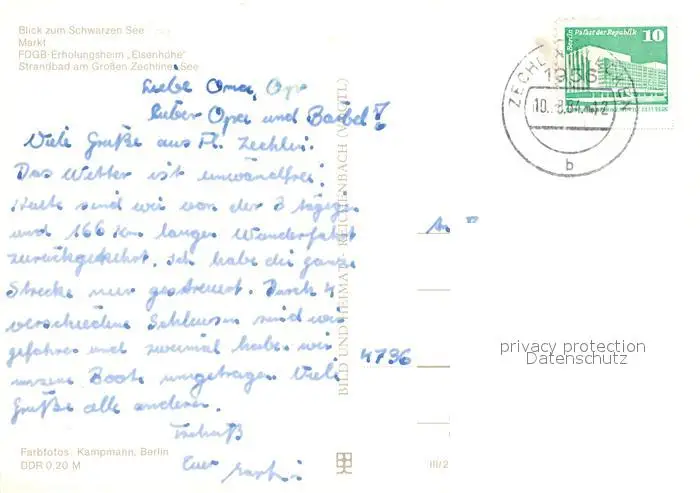 Blick zum Schwarzen See
Markt
FDGB-Erholungsheim „Eisenhöhe"
Strandbad am Großen Zechliner See
Liebe Oma, Opa
lieber Opa und Bärbel!
Viele Grüße aus Fl. Zechlin.
Das Wetter ist einwandfrei.
Heute sind wir von der 3 tägigen
und 166 km langen Wanderfahrt
zurückgekehrt. Ich habe die ganze
Strecke nur gesteuert. Durch 4
verschiedene Schleusen sind wir
gefahren und zweimal haben wir
unsere Boote umgetragen. Viele
Grüße alle anderen.
Tschüß
Euer
Farbfotos: Kampmann, Berlin
DDR 0,20 M
BILD UND HEIMAT REICHENBACH (VOGTL)
III/2
An
4736
Berlin Palast der Republik 10
1955
10.8.84-12
b
privacy protection
Datenschutz